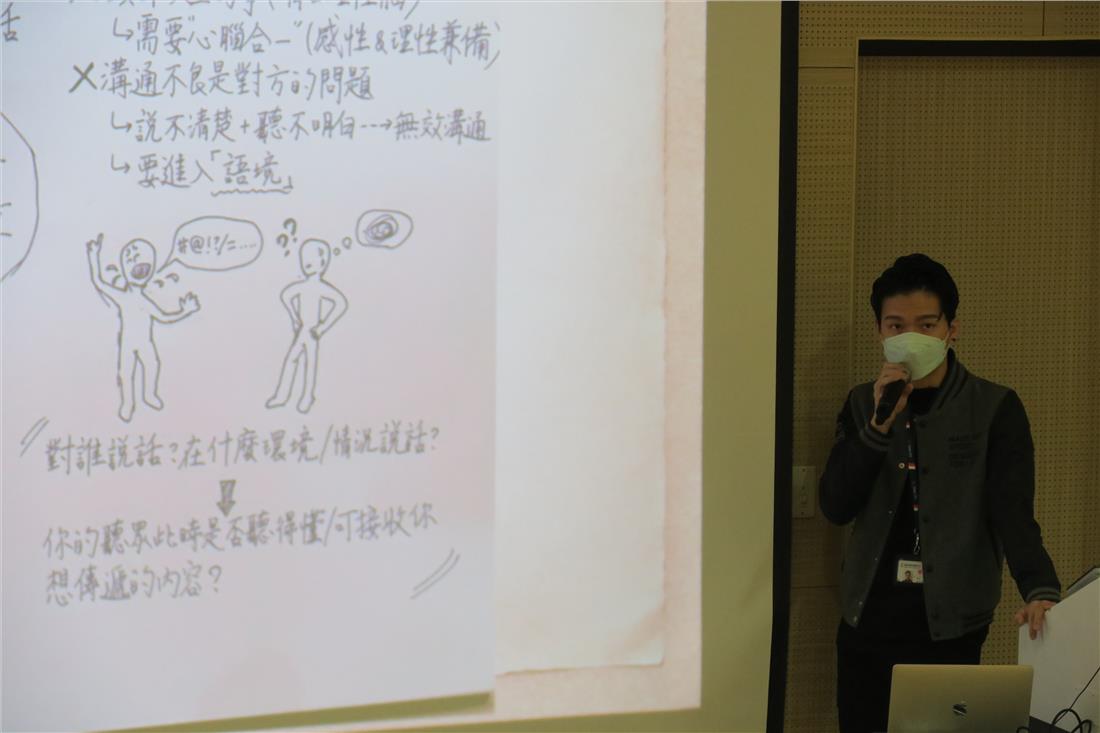 活
↳需要"心腦合一"(感性&理性兼備)
✗溝通不良是對方的問題
↳說不清楚+聽不明白---→無效溝通
↳要進入「語境」
#@!?/=....
??
對誰說話?在什麼環境/情況說話?
你的聽眾此時是否聽得懂/可接收你
想傳遞的內容?